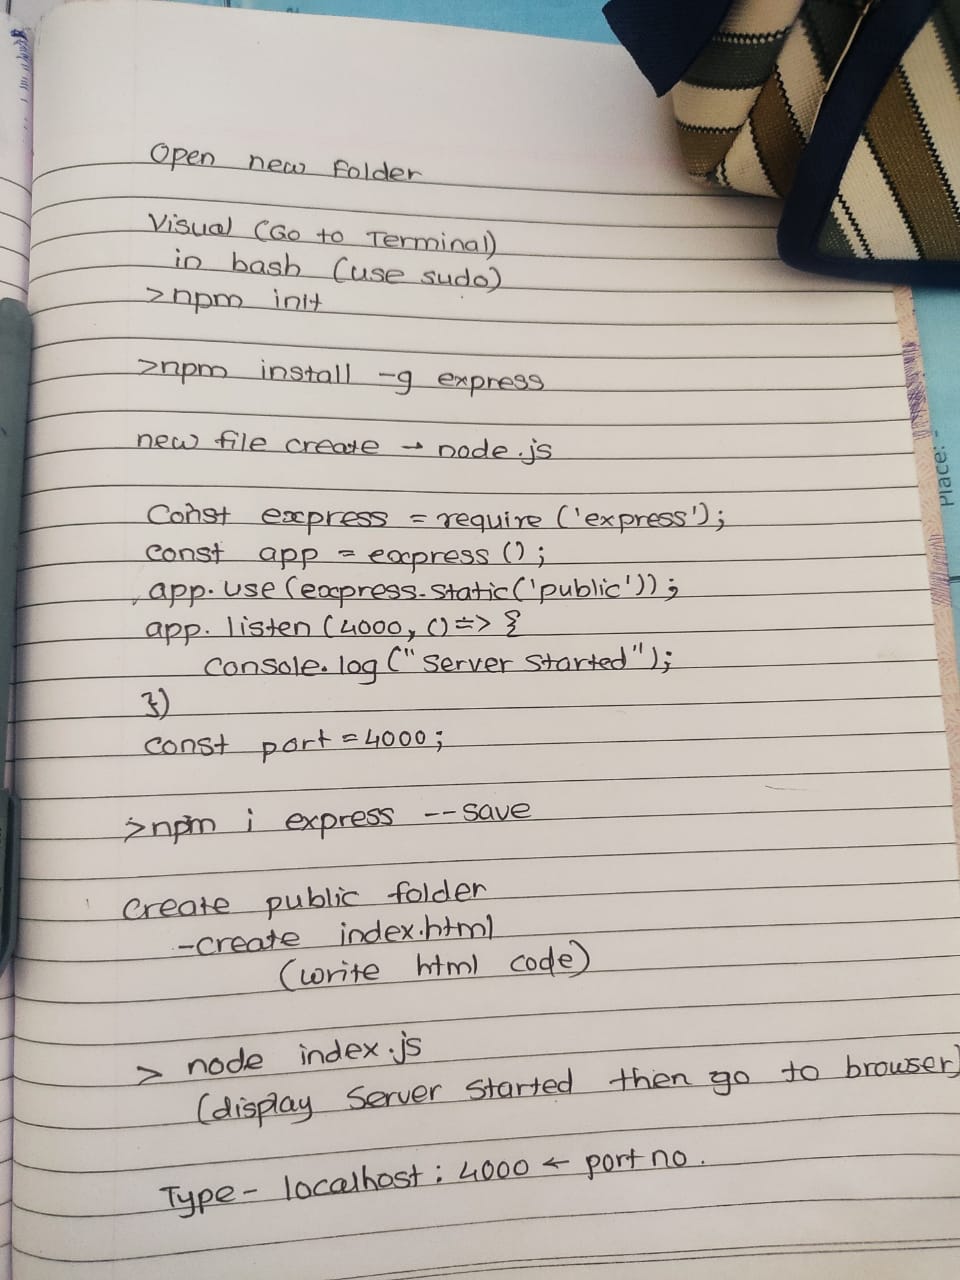 Open new folder
Visual (Go to Terminal)
in bash (use sudo)
>npm init
>npm install -g express
new file create → node.js
Const express = require ('express');
const app = express ();
app.use (express.static('public'));
app.listen (4000, () => {
console.log ("Server Started");
})
const port = 4000;
>npm i express --save
Create public folder
-create index.html
(write html code)
> node index.js
(display Server Started then go to browser)
Type - localhost: 4000 ← port no.
Place: -